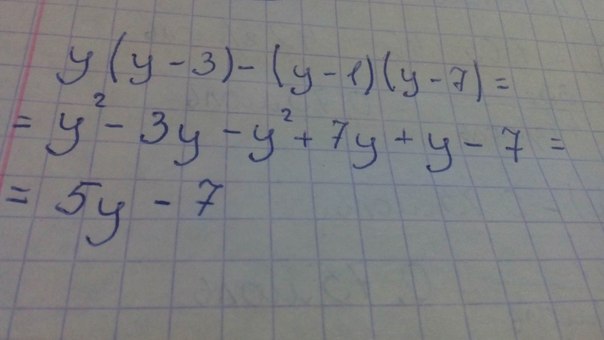 y(y-3)-(y-1)(y-7)=
=y²-3y-y²+7y+y-7=
=5y-7